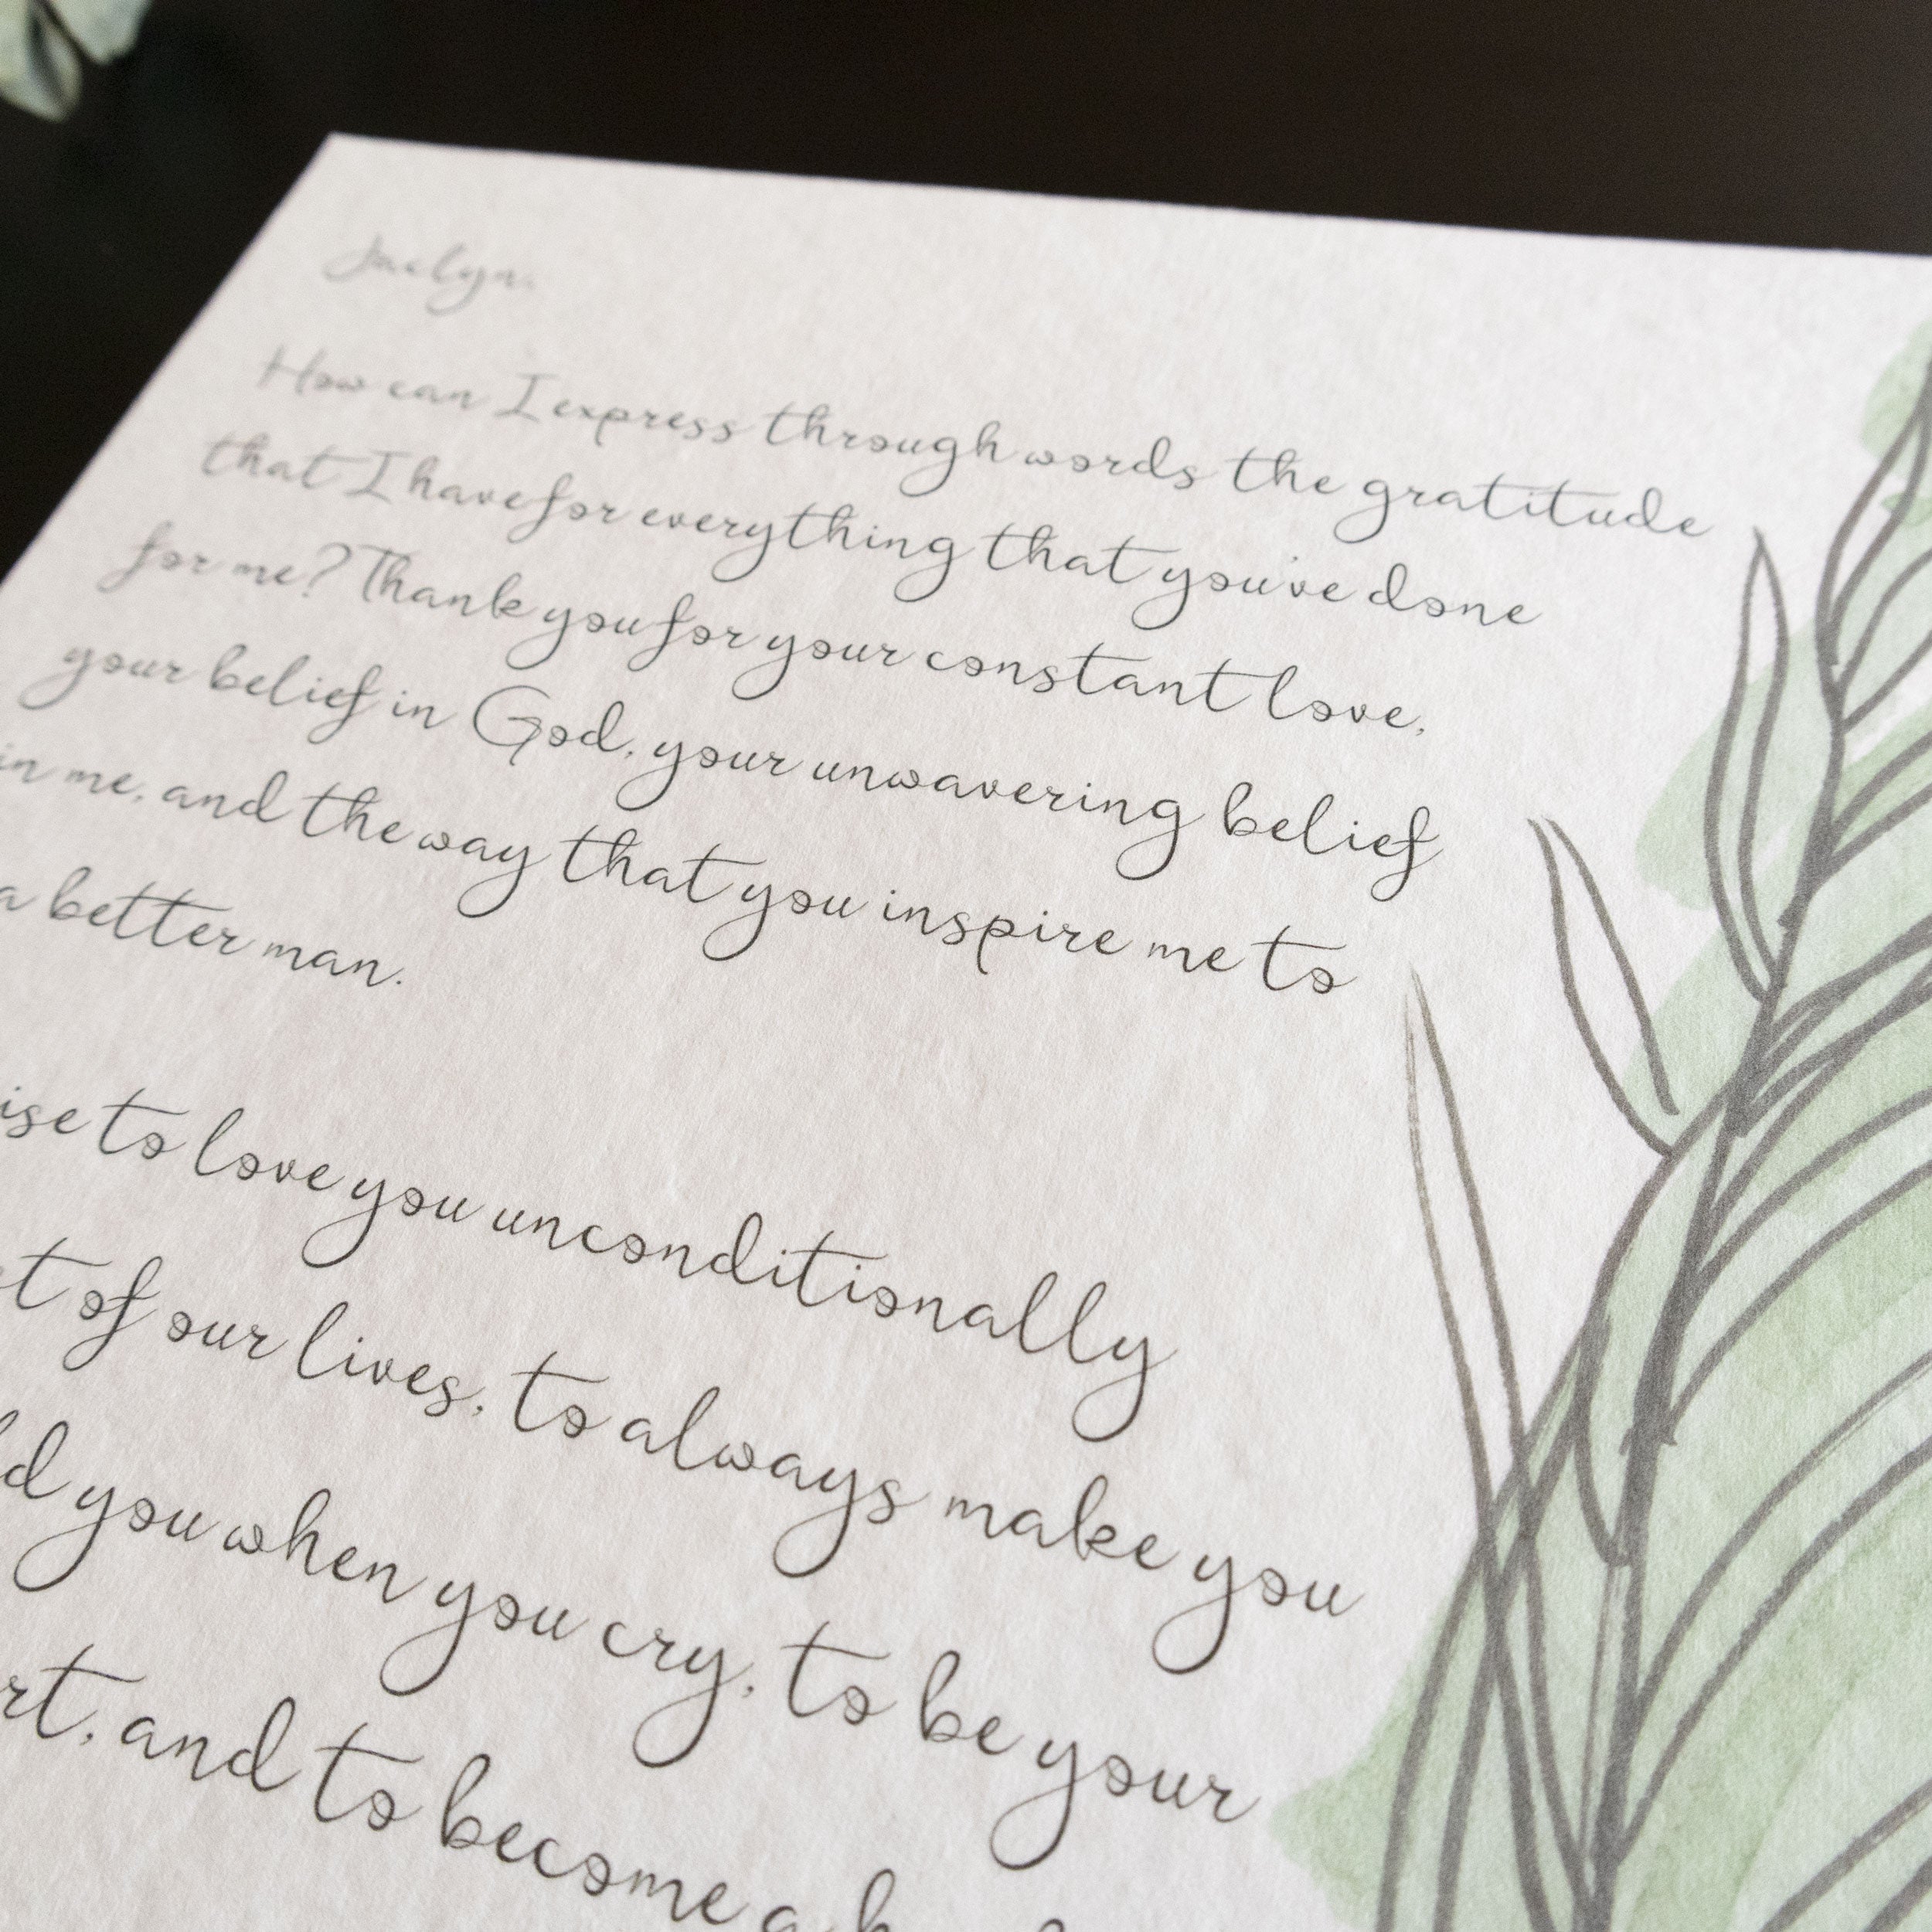 Jaclyn,
How can I express through words the gratitude
that I have for everything that you've done
for me? Thank you for your constant love,
your belief in God, your unwavering belief
in me, and the way that you inspire me to
a better man.
ise to love you unconditionally
t of our lives, to always make you
d you when you cry, to be your
rt, and to become a